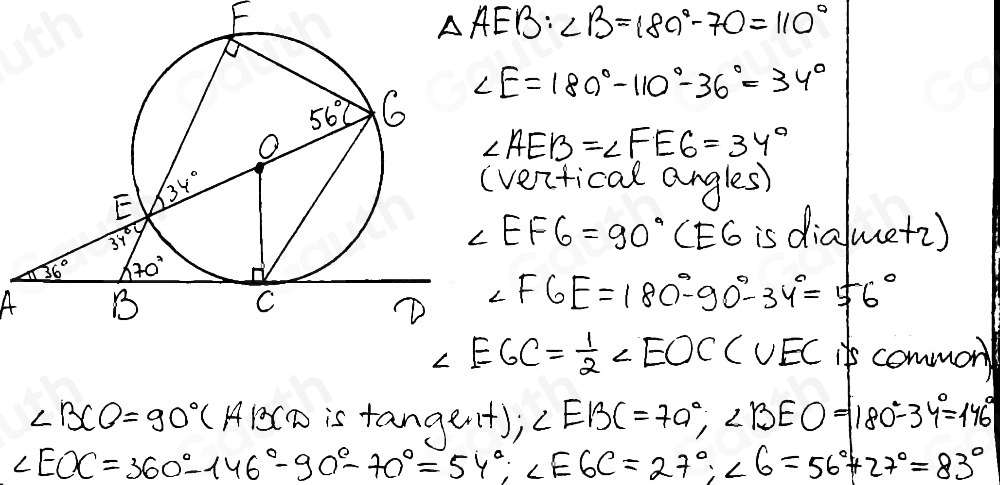 F
△AEB: ∠B=180°-70=110°
∠E=180°-110°-36°=34°
56°
G
O
∠AEB=∠FEG=34°
(vertical angles)
E
34°
34°
∠EFG=90° (EG is diametr)
36°
70°
∠FGE=180°-90°-34°=56°
A
B
C
D
∠EGC=½∠EOC (∪EC is common)
∠BCO=90° (ABCD is tangent); ∠EBC=70°; ∠BEO=180°-34°=146°
∠EOC=360°-146°-90°-70°=54°; ∠EGC=27°; ∠G=56°+27°=83°